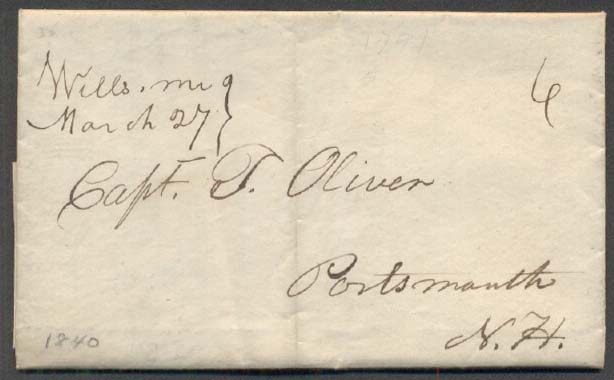 Wells. me
March 27
6
Capt. T. Oliver
Portsmouth
N. H.
1840